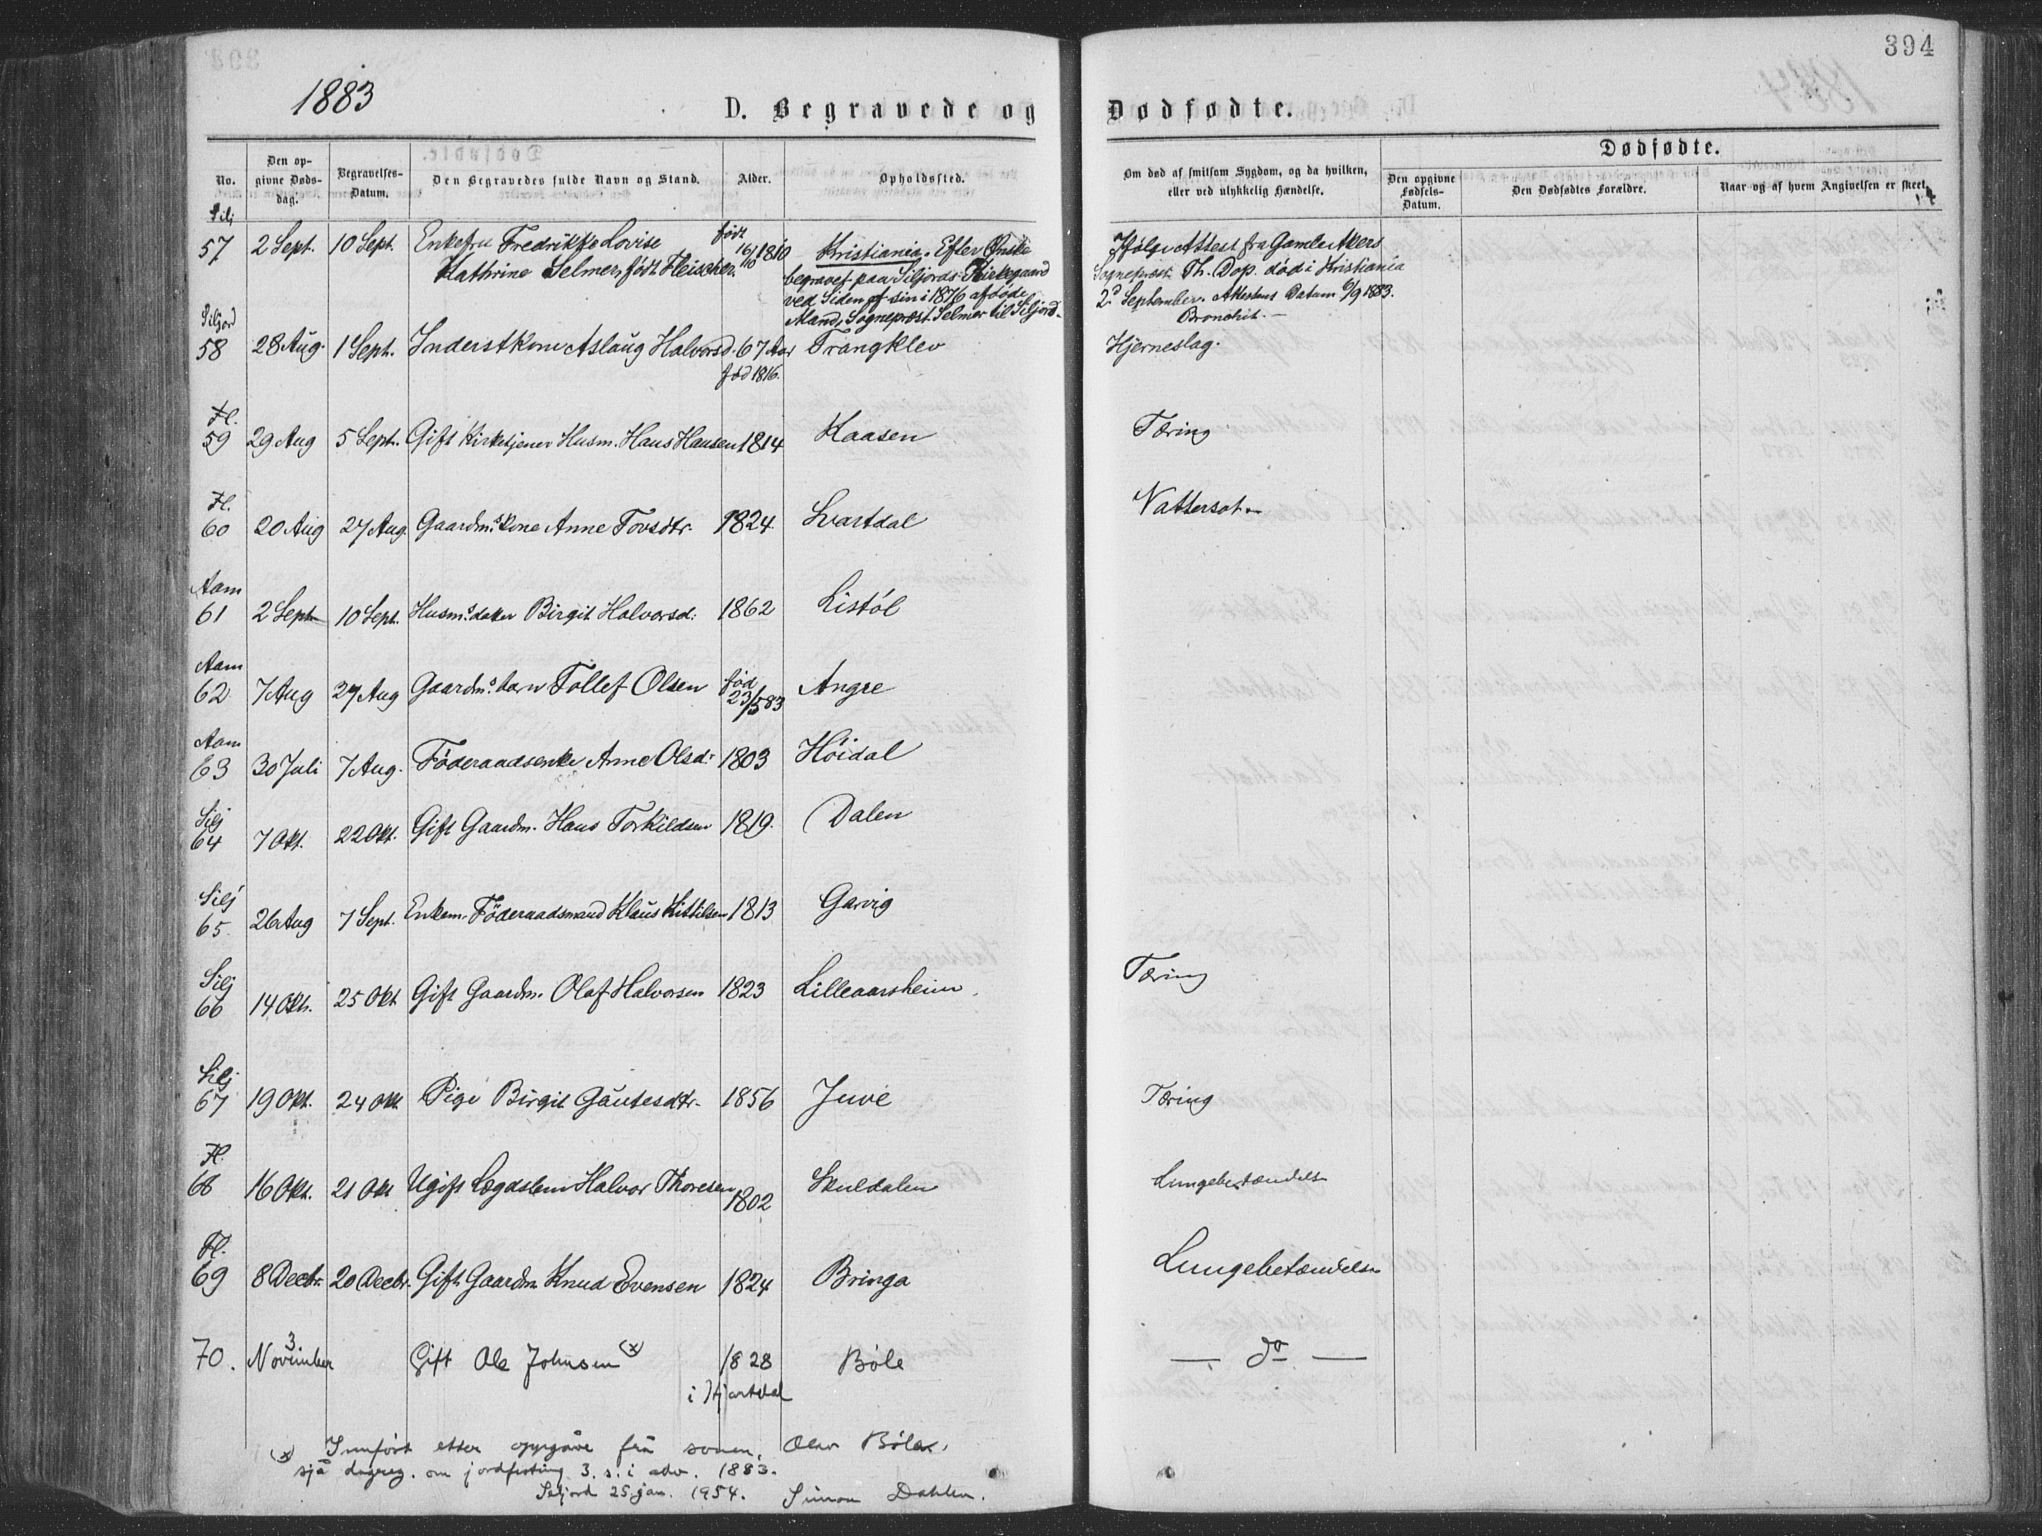 394
1883
D. Begravede og Dødfødte.
No.
Den opgivne Dødsdag.
Begravelses-Datum.
Den Begravedes fulde Navn og Stand.
Alder.
Opholdssted.
Om død af smitsom Sygdom, og da hvilken, eller ved ulykkelig Hændelse.
Dødfødte.
Den opgivne Fødsels-Datum.
Den Dødfødtes Forældre.
Naar og af hvem Angivelsen er skeet.
Silj
57 2 Sept. 10 Sept. Enkefru Fredrikke Lovise født 16/10 1810 Kristiania. Efter Ønske Ifølge Attest fra Gamle Akers
Kathrine Selmer, født Fleischer. begravet paa Siljords Kirkegaard Sognepræst Th. Dop. død i Kristiania
ved Siden af sin i 1876 afdøde 2d September. Attestens Datum 6/9 1883.
Mand, Sognepræst Selmer til Siljord. Bronchit.
Siljord
58 28 Aug. 1 Sept. Inderstkone Aslaug Halvorsd. 67 Aar Trangklev Hjerneslag.
fød 1816.
Fl.
59 29 Aug 5 Sept. Gift Kirketjener Husm. Hans Hansen 1814 Kaasen Tæring
Fl.
60 20 Aug 27 Aug. Gaardm.s Kone Anne Tovsdtr. 1824. Svartdal Nattersot
Aam
61 2 Sept 10 Sept. Husm.s datter Birgit Halvorsd: 1862 Listöl
Aam
62 7 Aug 27 Aug Gaardm.s barn Tollef Olsen fød 23/5 83 Angre
Aam
63 30 Juli 7 Aug. Föderaadsenke Anne Olsd: 1803 Höidal
Silj
64 7 Okt. 22 Okt. Gift Gaardm. Hans Torkildsen 1819. Dalen
Silj
65 26 Aug 7 Sept. Enkem. Föderaadsmand Klaus Kittilsen 1813 Garvig
Silj
66 14 Okt. 25 Okt Gift Gaardm. Olaf Halvorsen 1823 Lilleaarsheim Tæring
Silj
67 19 Okt. 24 Okt Pige Birgit Gautesdtr. 1856 Juve Tæring
Fl.
68 16 Okt. 21 Okt Ugift Lægdslem Halvor Thoresen 1802 Skuldalen Lungebetændelse
Fl.
69 8 Decbr. 20 Decbr. Gift Gaardm Knud Evensen 1824 Bringa Lungebetændelse
70. 3 November Gift Ole Johnsen (x) 1828 Böle — do —
i Hjartdal
(x) Innført etter oppgåve frå sonen, Olav Böle,
sjå dagreg. om jordfesting 3. s. i adv. 1883.
Seljord 25 jan. 1954. Simon Dahlen.